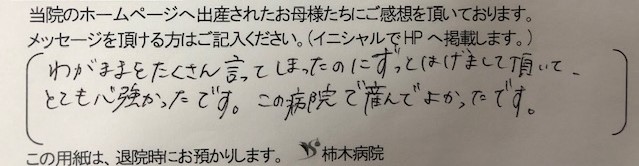 当院のホームページへ出産されたお母様たちにご感想を頂いております。
メッセージを頂ける方はご記入ください。（イニシャルでHPへ掲載します。）
わがままをたくさん言ってしまったのにずっとはげまして頂いて、
とても心強かったです。この病院で産んでよかったです。
この用紙は、退院時にお預かりします。 柿木病院